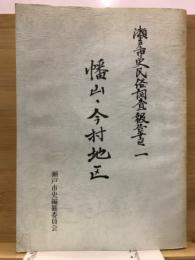 瀬戸市史民俗調査報告書 一
幡山・今村地区
瀬戸市史編纂委員会